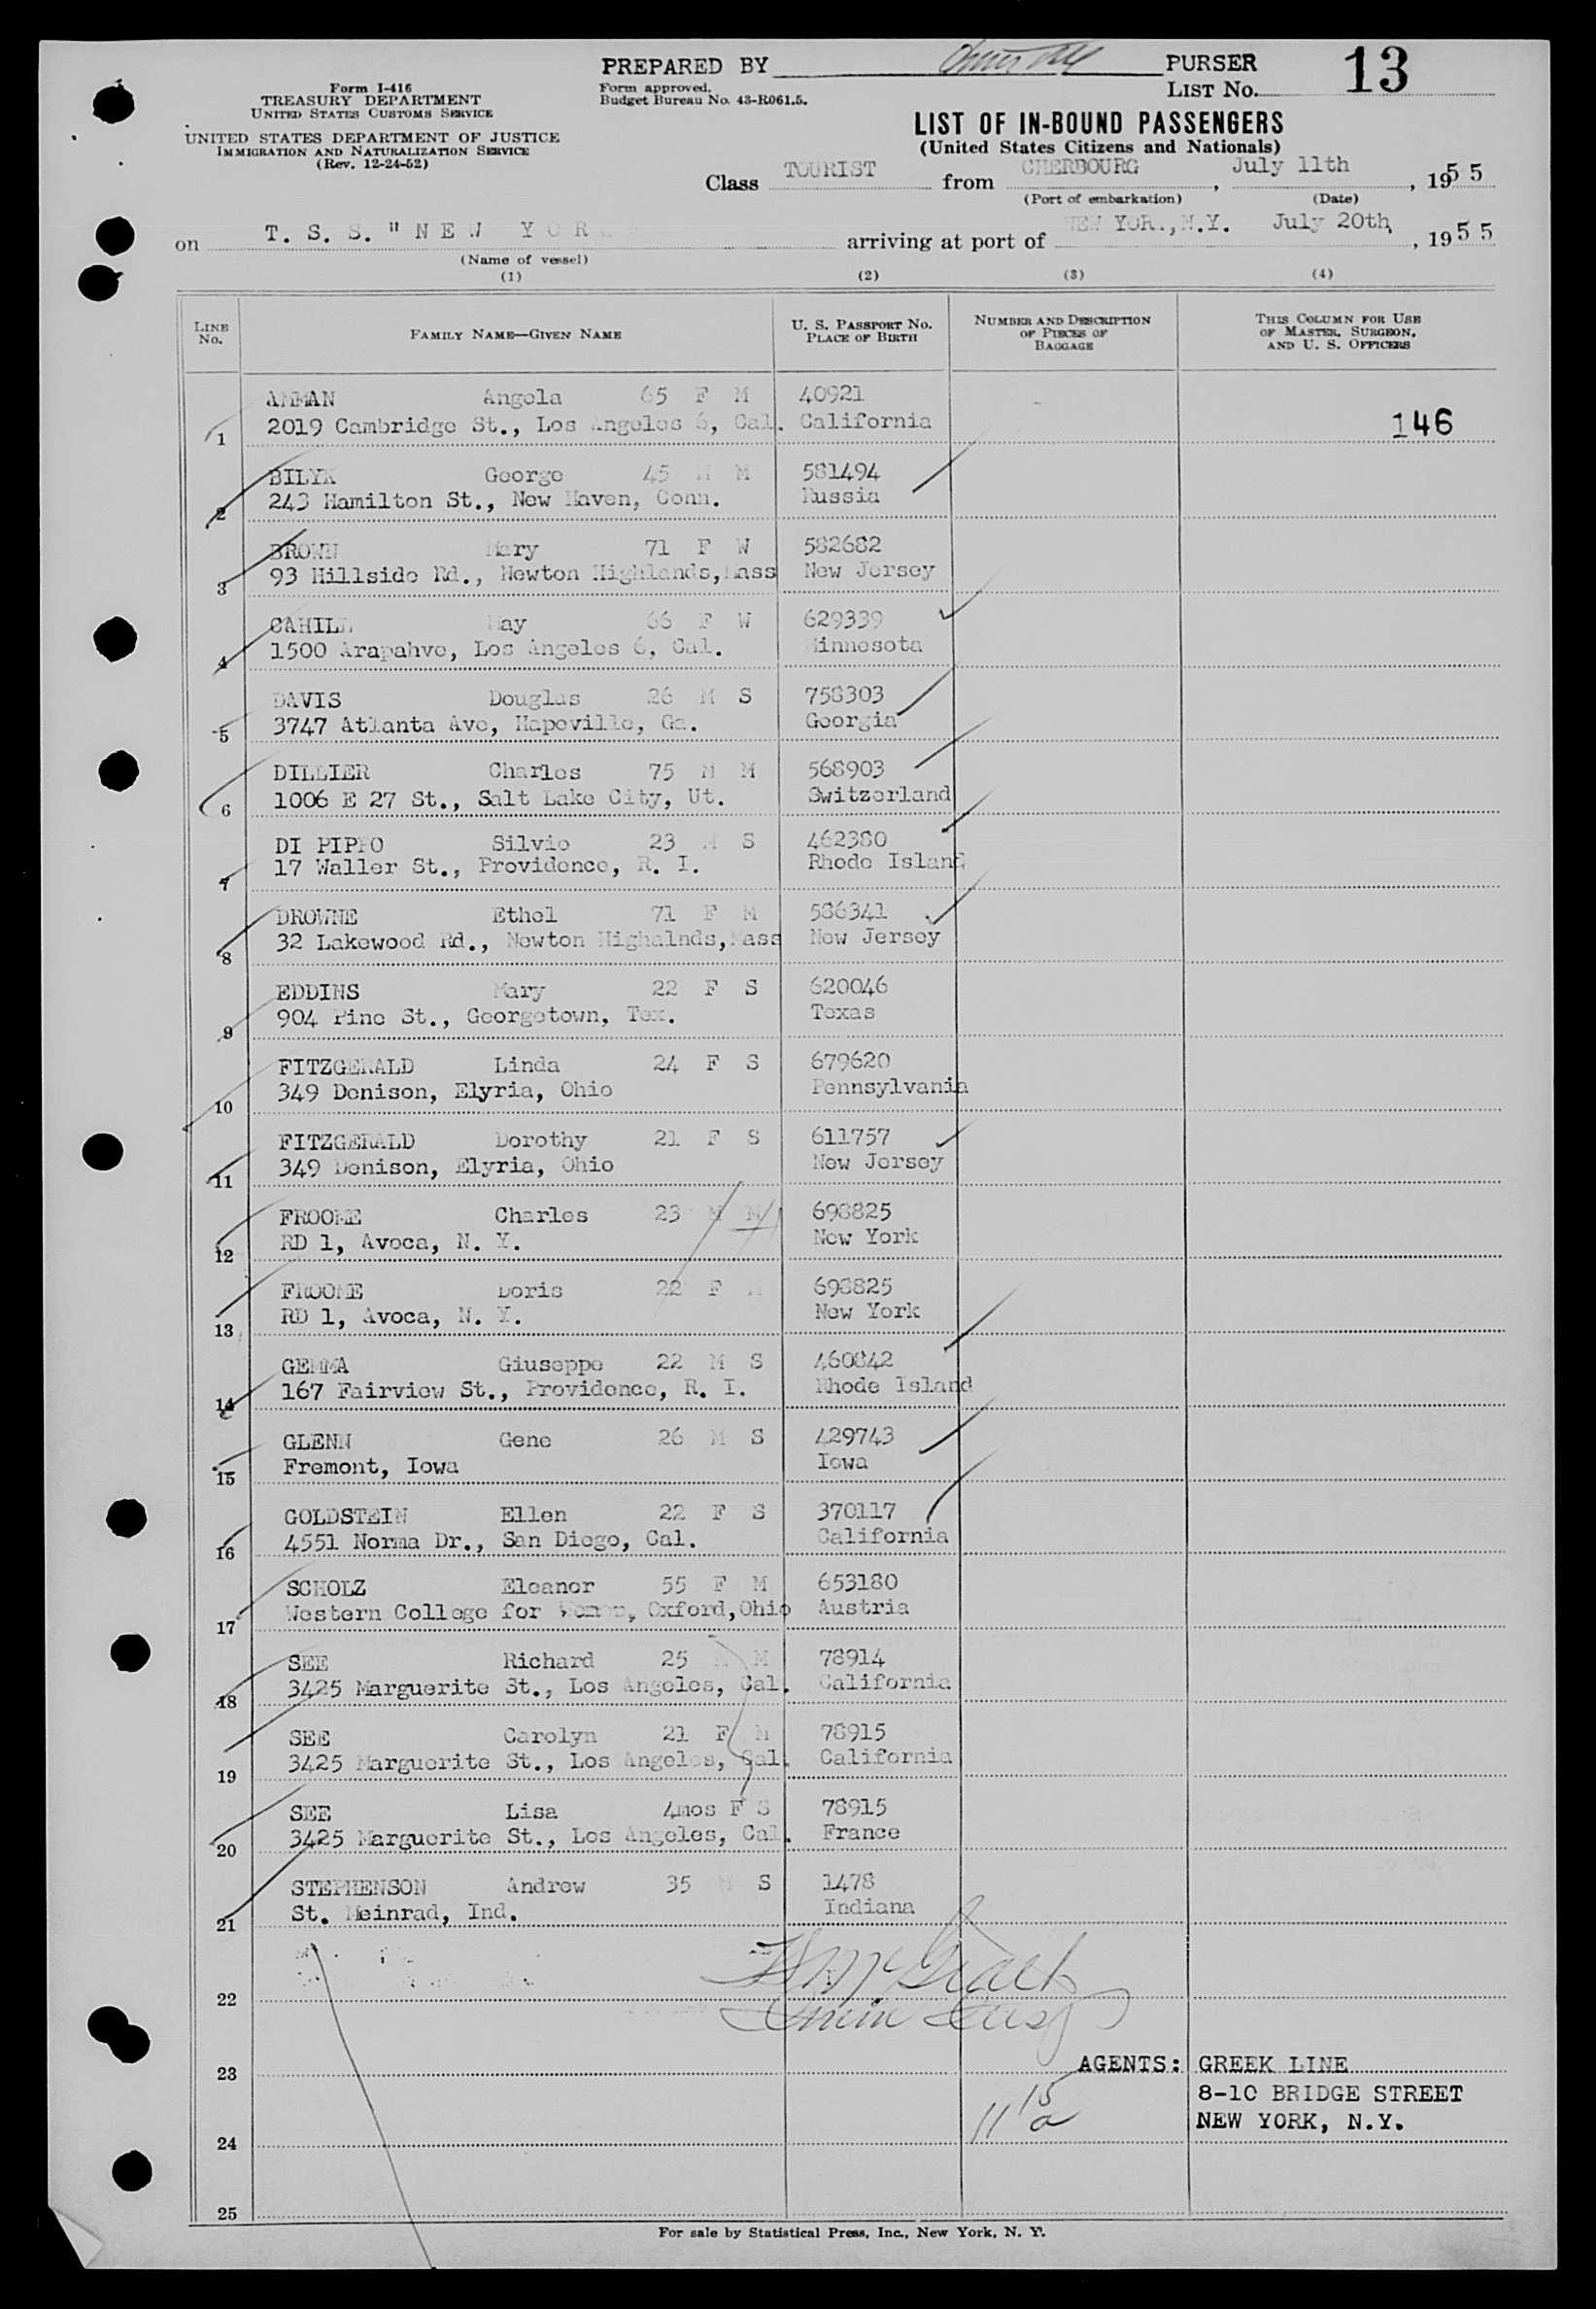 PREPARED BY PURSER
Form I-416
TREASURY DEPARTMENT
UNITED STATES CUSTOMS SERVICE
UNITED STATES DEPARTMENT OF JUSTICE
IMMIGRATION AND NATURALIZATION SERVICE
(Rev. 12-24-52)
Form approved.
Budget Bureau No. 43-R061.5.
LIST No. 13
LIST OF IN-BOUND PASSENGERS
(United States Citizens and Nationals)
Class TOURIST from CHERBOURG, July 11th, 1955
(Port of embarkation) (Date)
on T. S. S. "NEW YORK arriving at port of NEW YORK,N.Y. July 20th, 1955
(Name of vessel)
(1) (2) (3) (4)
LINE No. FAMILY NAME—GIVEN NAME U. S. PASSPORT No. PLACE OF BIRTH NUMBER AND DESCRIPTION OF PIECES OF BAGGAGE THIS COLUMN FOR USE OF MASTER, SURGEON, AND U. S. OFFICERS
AMMAN Angela 65 F M 40921
1 2019 Cambridge St., Los Angeles 6, Cal. California 146
BILYK George 45 M M 581494
2 243 Hamilton St., New Haven, Conn. Russia
BROWN Mary 71 F W 582682
3 93 Hillside Rd., Newton Highlands,Mass New Jersey
CAHILL May 66 F W 629339
4 1500 Arapahve, Los Angeles 6, Cal. Minnesota
DAVIS Douglas 26 M S 758303
5 3747 Atlanta Ave, Hapeville, Ga. Georgia
DILLIER Charles 75 M M 568903
6 1006 E 27 St., Salt Lake City, Ut. Switzerland
DI PIPPO Silvio 23 M S 462380
7 17 Waller St., Providence, R. I. Rhode Island
DROWNE Ethel 71 F M 586341
8 32 Lakewood Rd., Newton Highalnds,Mass New Jersey
EDDINS Mary 22 F S 620046
9 904 Pine St., Georgetown, Tex. Texas
FITZGERALD Linda 24 F S 679620
10 349 Denison, Elyria, Ohio Pennsylvania
FITZGERALD Dorothy 21 F S 611757
11 349 Denison, Elyria, Ohio New Jersey
FROOME Charles 23 M M 698825
12 RD 1, Avoca, N. Y. New York
FROOME Doris 22 F M 698825
13 RD 1, Avoca, N. Y. New York
GEMMA Giuseppe 22 M S 460842
14 167 Fairview St., Providence, R. I. Rhode Island
GLENN Gene 26 M S 429743
15 Fremont, Iowa Iowa
GOLDSTEIN Ellen 22 F S 370117
16 4551 Norma Dr., San Diego, Cal. California
SCHOLZ Eleanor 55 F M 653180
17 Western College for Women, Oxford,Ohio Austria
SEE Richard 25 M M 78914
18 3425 Marguerite St., Los Angeles, Cal. California
SEE Carolyn 21 F M 78915
19 3425 Marguerite St., Los Angeles, Cal. California
SEE Lisa 4mos F S 78915
20 3425 Marguerite St., Los Angeles, Cal. France
STEPHENSON Andrew 35 M S 1478
21 St. Meinrad, Ind. Indiana
22
23 AGENTS: GREEK LINE
8-10 BRIDGE STREET
24 11 15 a NEW YORK, N.Y.
25
For sale by Statistical Press, Inc., New York, N. Y.